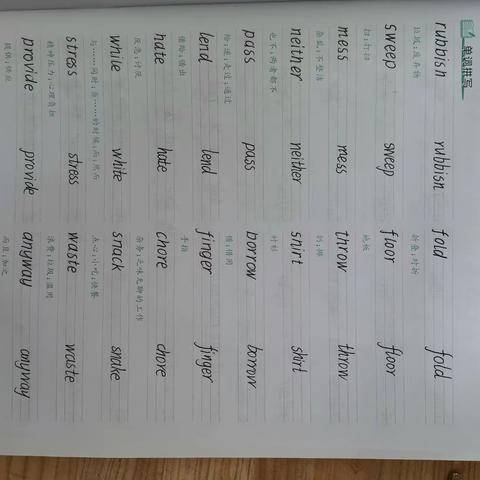 单词拼写
rubbish rubbish fold fold
垃圾;废弃物 折叠;对折
sweep sweep floor floor
扫;打扫 地板
mess mess throw throw
杂乱;不整洁 扔;掷
neither neither shirt shirt
也不;两者都不 衬衫
pass pass borrow borrow
给;递;走过;通过 借;借用
lend lend finger finger
借给;借出 手指
hate hate chore chore
厌恶;讨厌 杂务;乏味无聊的工作
while white snack snake
与……同时;当……的时候;而;然而 点心;小吃;快餐
stress stress waste waste
精神压力;心理负担 浪费;垃圾;滥用
provide provide anyway anyway
提供;供应 而且;加之